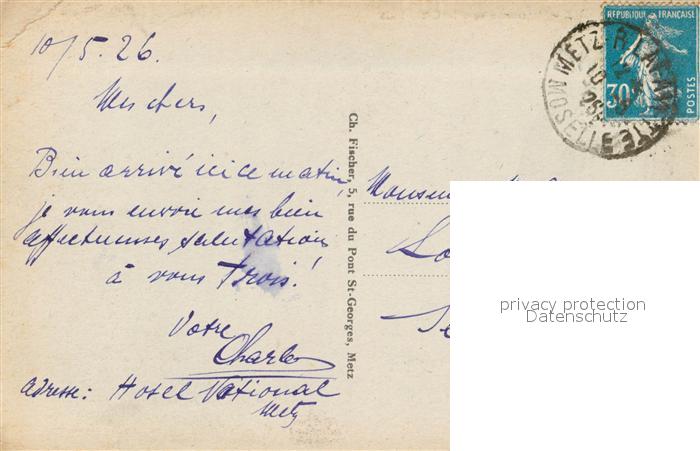 10/5.26.
Mes chers,
Bien arrivé ici ce matin,
je vous envoie mes bien
affectueuses salutations
à vous trois!
Votre
Charles
adresse: Hotel National
Metz
Ch. Fischer, 5, rue du Pont St-Georges, Metz
REPUBLIQUE FRANÇAISE
30
POSTES
METZ-R.
MOSELLE
10
privacy protection
Datenschutz